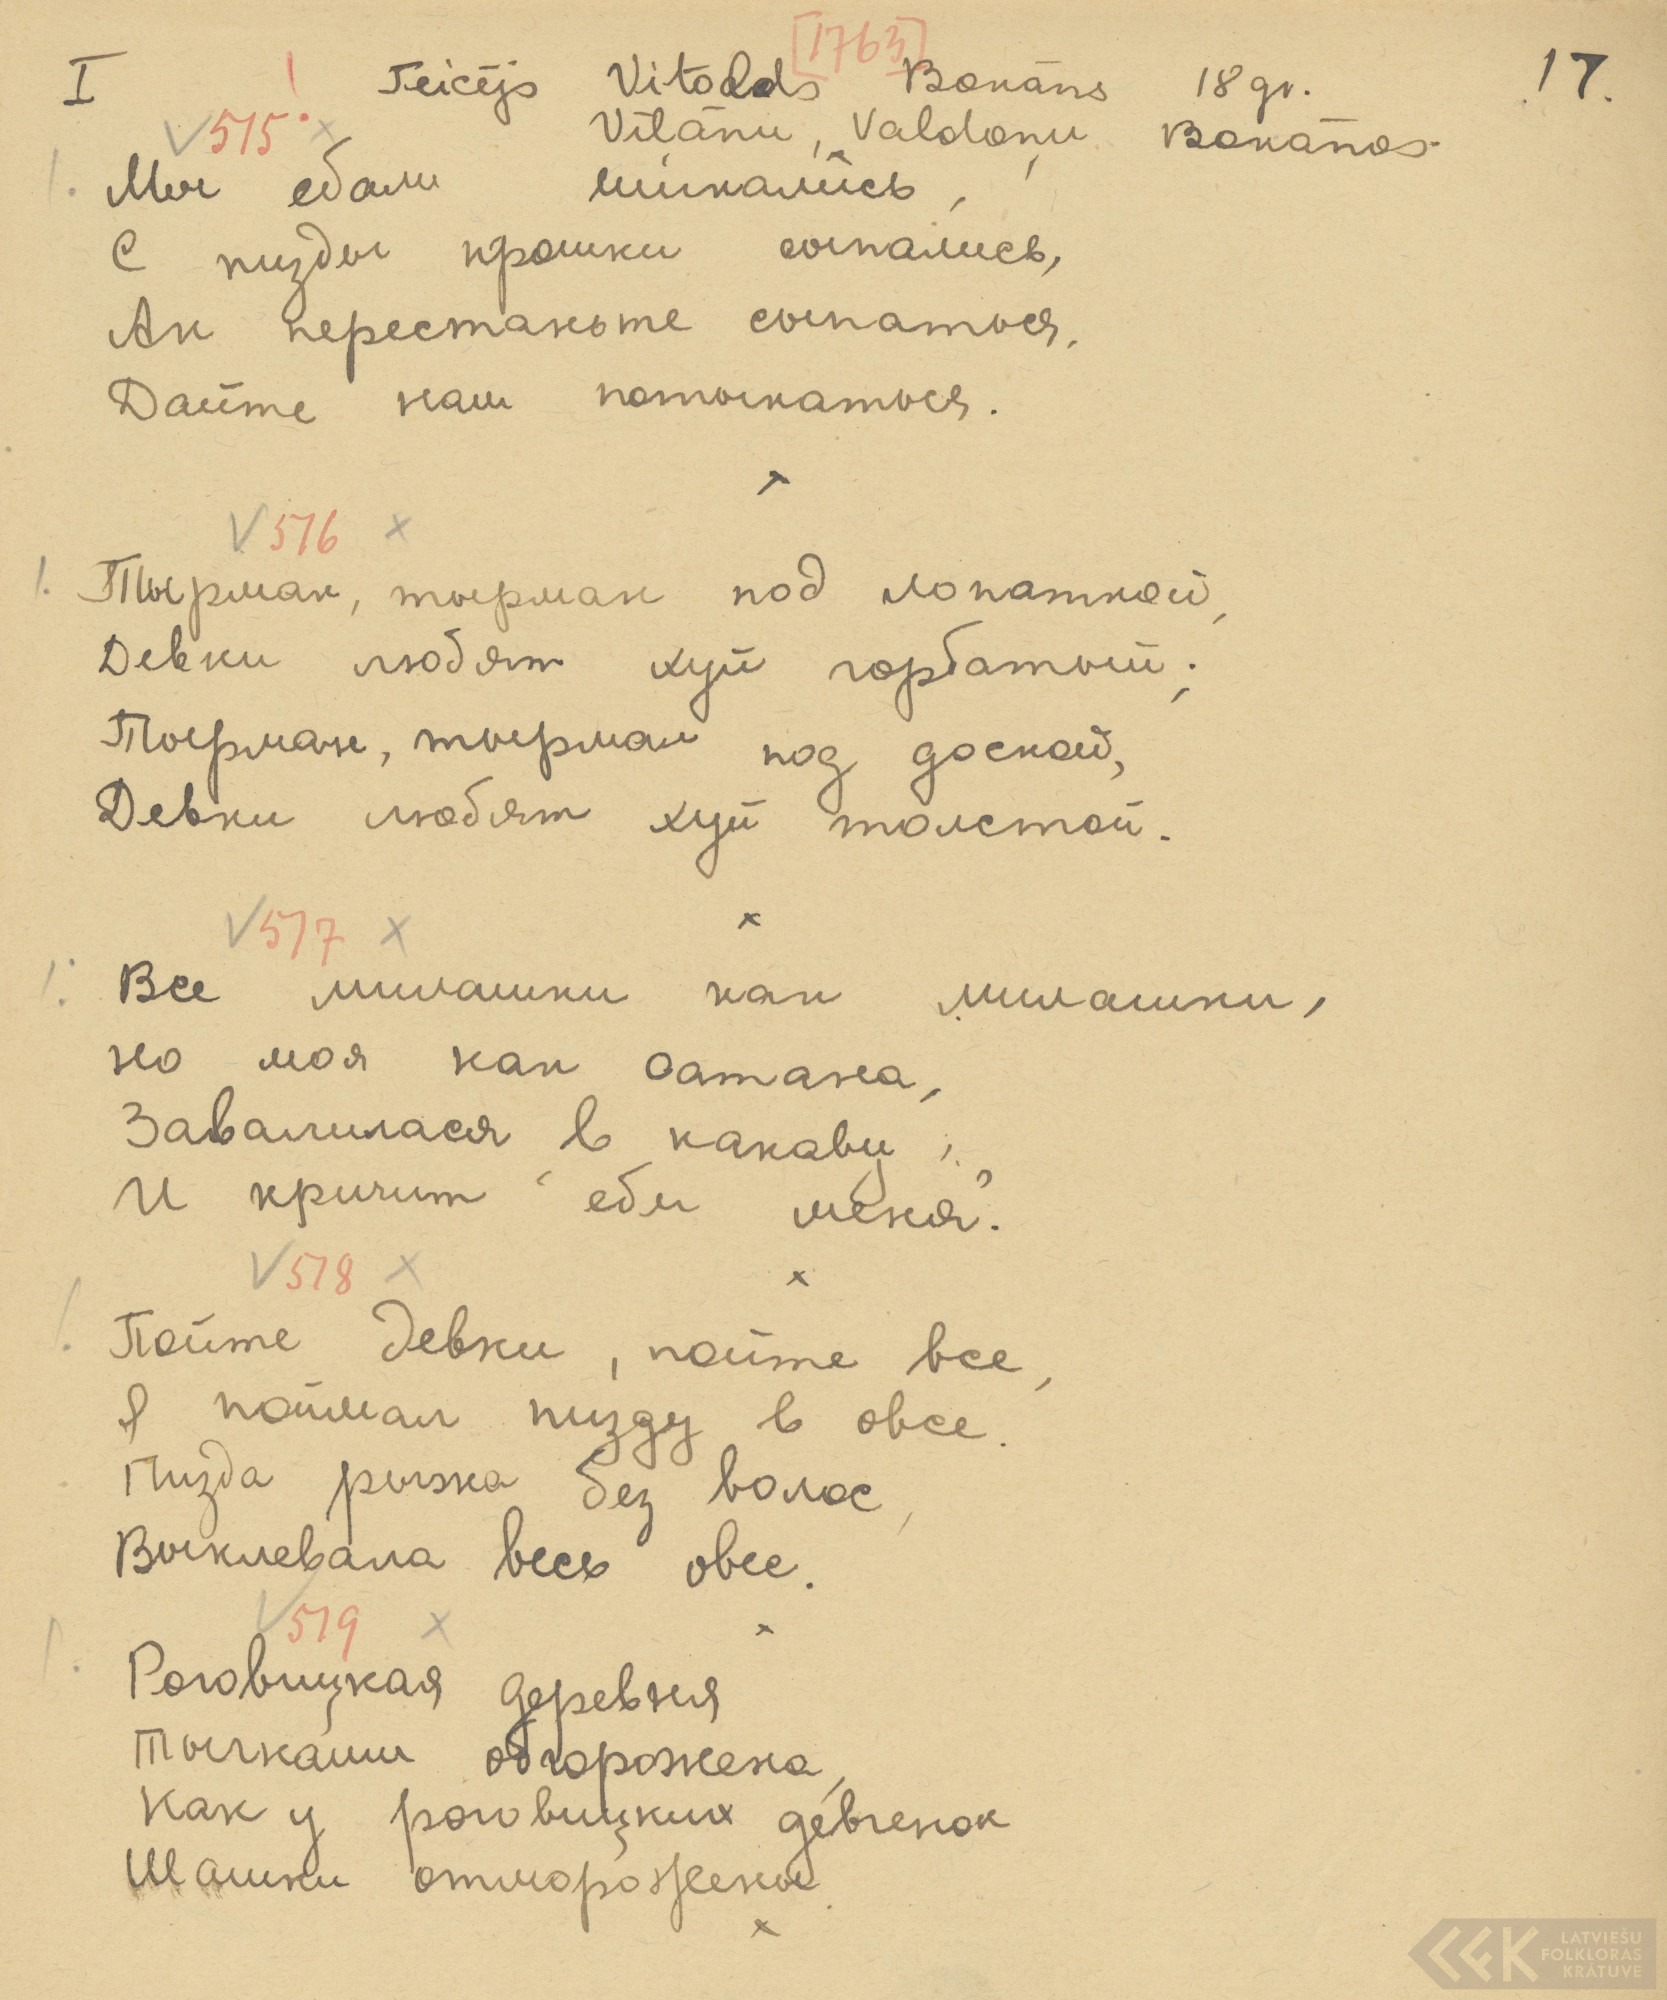 [1763]
I ! Teicējs Vitolds Bokāns 18 gv. 17.
V 515 x Vīlānu, Valdoņu Bokānos.
1. Мы ебали шикались,
С пизды крошки сыпались,
Ак перестаньте сыпаться,
Дайте нам потыкаться.
x
V 516 x
1. Тырман, тырман под лопаткой,
Девки любят хуй горбатый;
Тырман, тырман под доской,
Девки любят хуй толстой.
V 517 x x
1. Все милашки как милашки,
но моя как сатана,
Завалилася в какаву,
И кричит "еби меня".
V 518 x x
1. Пойте девки, пойте все,
Я поймал пизду в овсе.
Пизда рыжа без волос,
Выклевала весь овес.
V 519 x x
1. Роговицкая деревня
Тычками обгорожена,
Как у роговицких девченок
Шашки отморожены.
x
LATVIEŠU
FOLKLORAS
KRĀTUVE